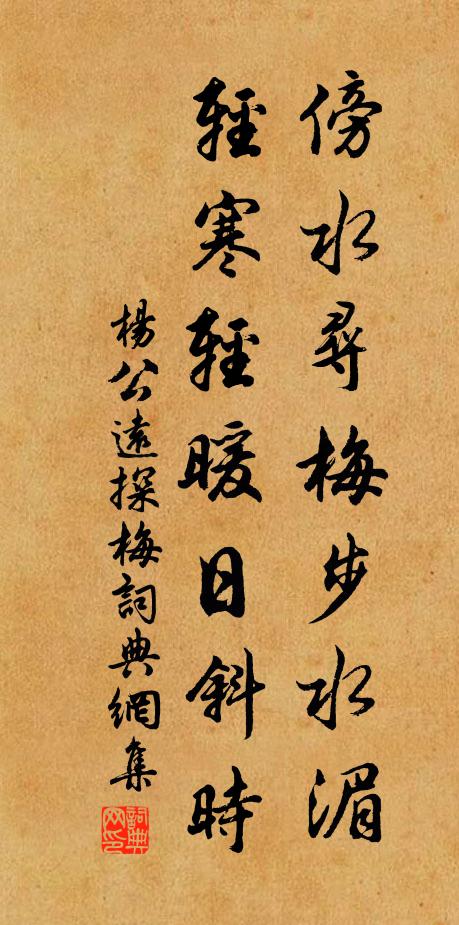 傍水尋梅步水湄
輕寒輕暖日斜時
楊公遠探梅詞典網集
詞典网印